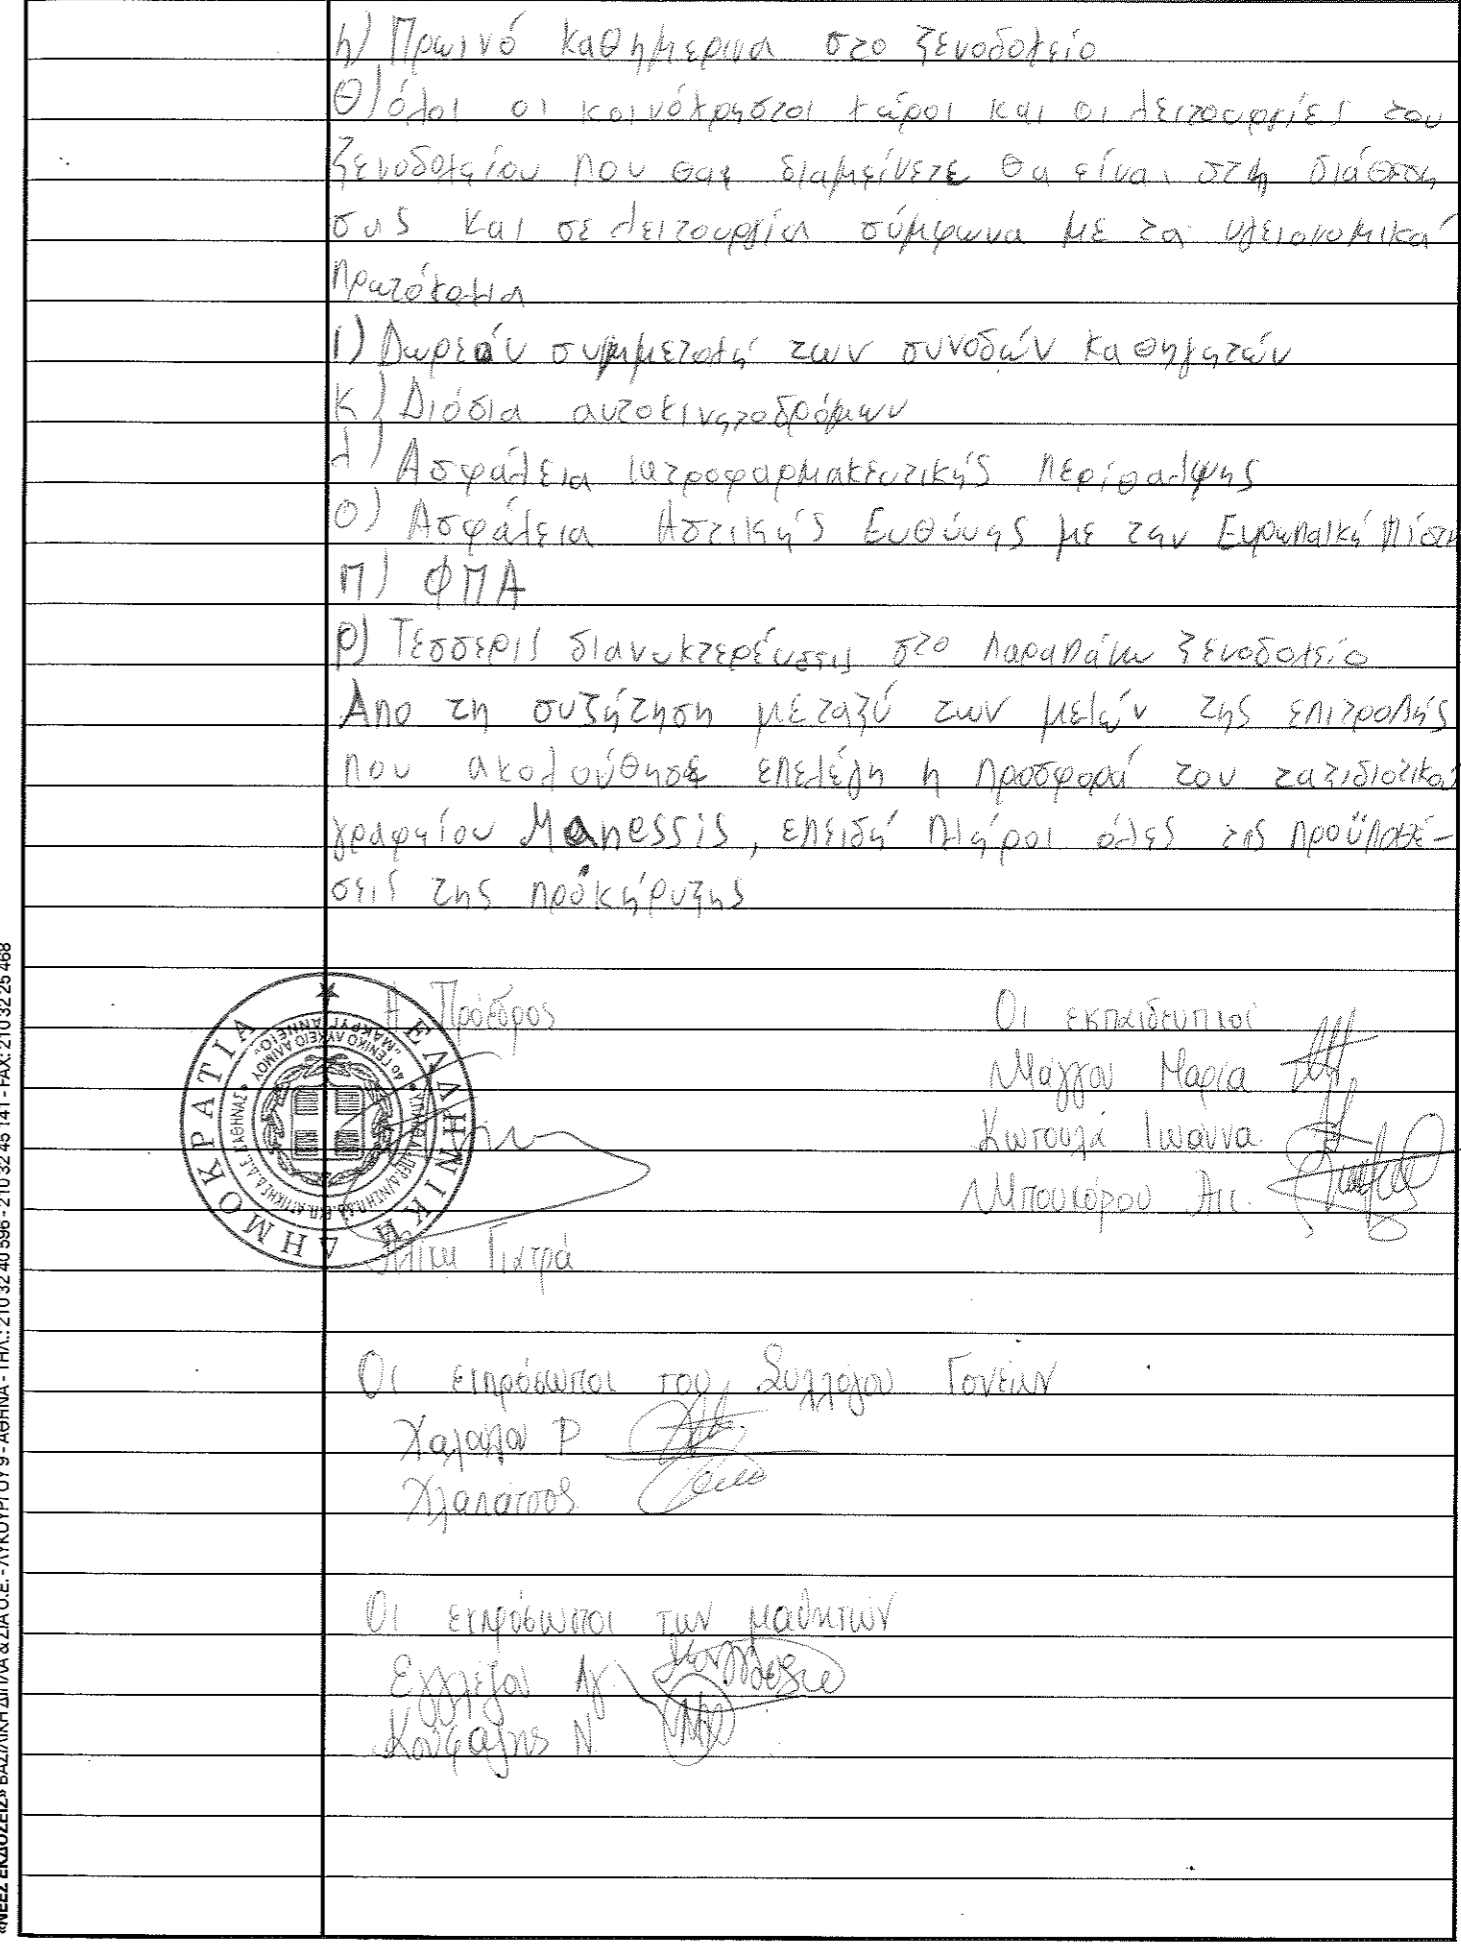 η) Πρωινό καθημερινά στο ξενοδοχείο
Θ) όλοι οι κοινόχρηστοι χώροι και οι λειτουργίες του
ξενοδοχείου που θα διαμείνετε θα είναι στη διάθεση
σας και σε λειτουργία σύμφωνα με τα υγειονομικά
πρωτόκολλα
ι) Δωρεάν συμμετοχή των συνοδών καθηγητών
κ) Διόδια αυτοκινητοδρόμων
λ) Ασφάλεια ιατροφαρμακευτικής περίθαλψης
ο) Ασφάλεια Αστικής Ευθύνης με την Ευρωπαική Πίστη
π) ΦΠΑ
ρ) Τέσσερις διανυκτερέυσεις στο παραπάνω ξενοδοχείο
Απο τη συζήτηση μεταξύ των μελών της επιτροπής
που ακολούθησε επελέγη η προσφορά του ταξιδιοτικού
γραφείου Manessis, επειδή πληροί όλες τις προϋποθέ-
σεις της προκήρυξης
Η Πρόεδρος
Αλίκη Γιατρά
Οι εκπαιδευτικοί
Μάγγου Μαρία
Κωτουλά Ιωάννα
Μπουκόρου Αικ.
Οι εκπρόσωποι του Συλλόγου Γονέων
Ρ
Οι εκπρόσωποι των μαθητών
Εγγλέζου Αγ.
Ν.
ΕΛΛΗΝΙΚΗ ΔΗΜΟΚΡΑΤΙΑ
4ο ΓΕΝΙΚΟ ΛΥΚΕΙΟ ΑΛΙΜΟΥ
«ΝΕΕΣ ΕΚΔΟΣΕΙΣ» ΒΑΣΙΛΙΚΗ ΔΙΠΛΑ & ΣΙΑ Ο.Ε. - ΛΥΚΟΥΡΓΟΥ 9 - ΑΘΗΝΑ - ΤΗΛ.: 210 32 40 596 - 210 32 45 141 - FAX: 210 32 25 468